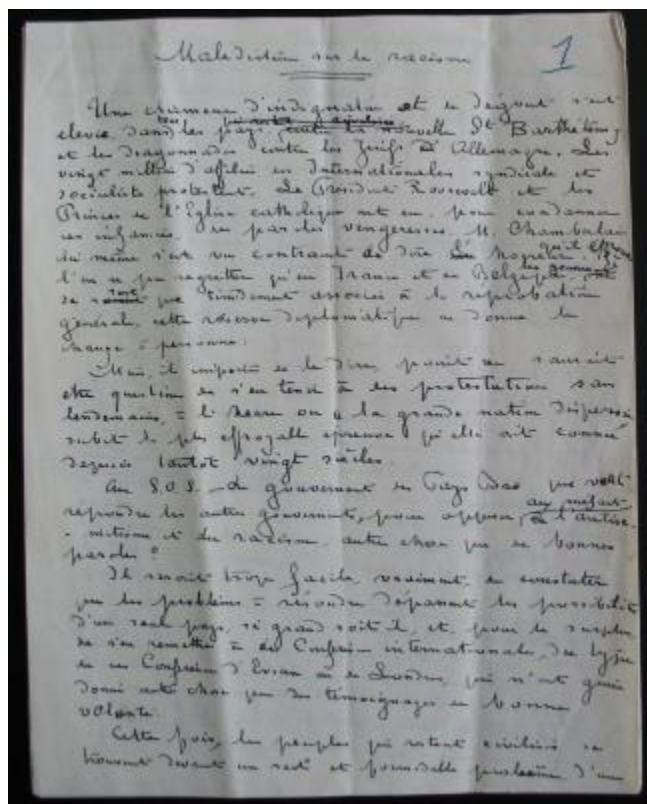 Malédiction sur le racisme
1
Une clameur d'indignation et de dégoût s'est
élevée, dans tous les pays, nouvelle St Barthélemy
et les dragonnades contre les Juifs d'Allemagne. Les
vingt millions d'affiliés des Internationales syndicale et
socialiste protestent. Le Président Roosevelt et les
Princes de l'Eglise catholique ont eu, pour condamner
ces infamies, des paroles vengeresses. M. Chamberlain
lui même s'est vu contraint de dire qu'il
l'on a pu regretter qu'en France et en Belgique, les
se soient que timidement associés à la réprobation
générale, cette réserve diplomatique ne donne le
change à personne.
Mais, il importe de le dire, point ne saurait
être question de s'en tenir à des protestations sans
lendemain, à l'heure où la grande nation dispersée
subit la plus effroyable épreuve qu'elle ait connue
depuis tantôt vingt siècles.
Au S.O.S. du gouvernement des Pays Bas que vont
répondre les autres gouvernements, pour opposer, aux méfaits de l'antisé-
-mitisme et du racisme autre chose que de bonnes
paroles ?
Il serait trop facile, vraiment, de constater
que les problèmes à résoudre dépassent les possibilités
d'un seul pays, si grand soit il, et, pour le surplus
de s'en remettre à des Conférences internationales, du type
de ces Conférences d'Evian ou de Londres, qui n'ont guère
donné autre chose que des témoignages de bonne
volonté.
Cette fois, les peuples qui restent civilisés se
trouvent devant un vaste et formidable problème d'un